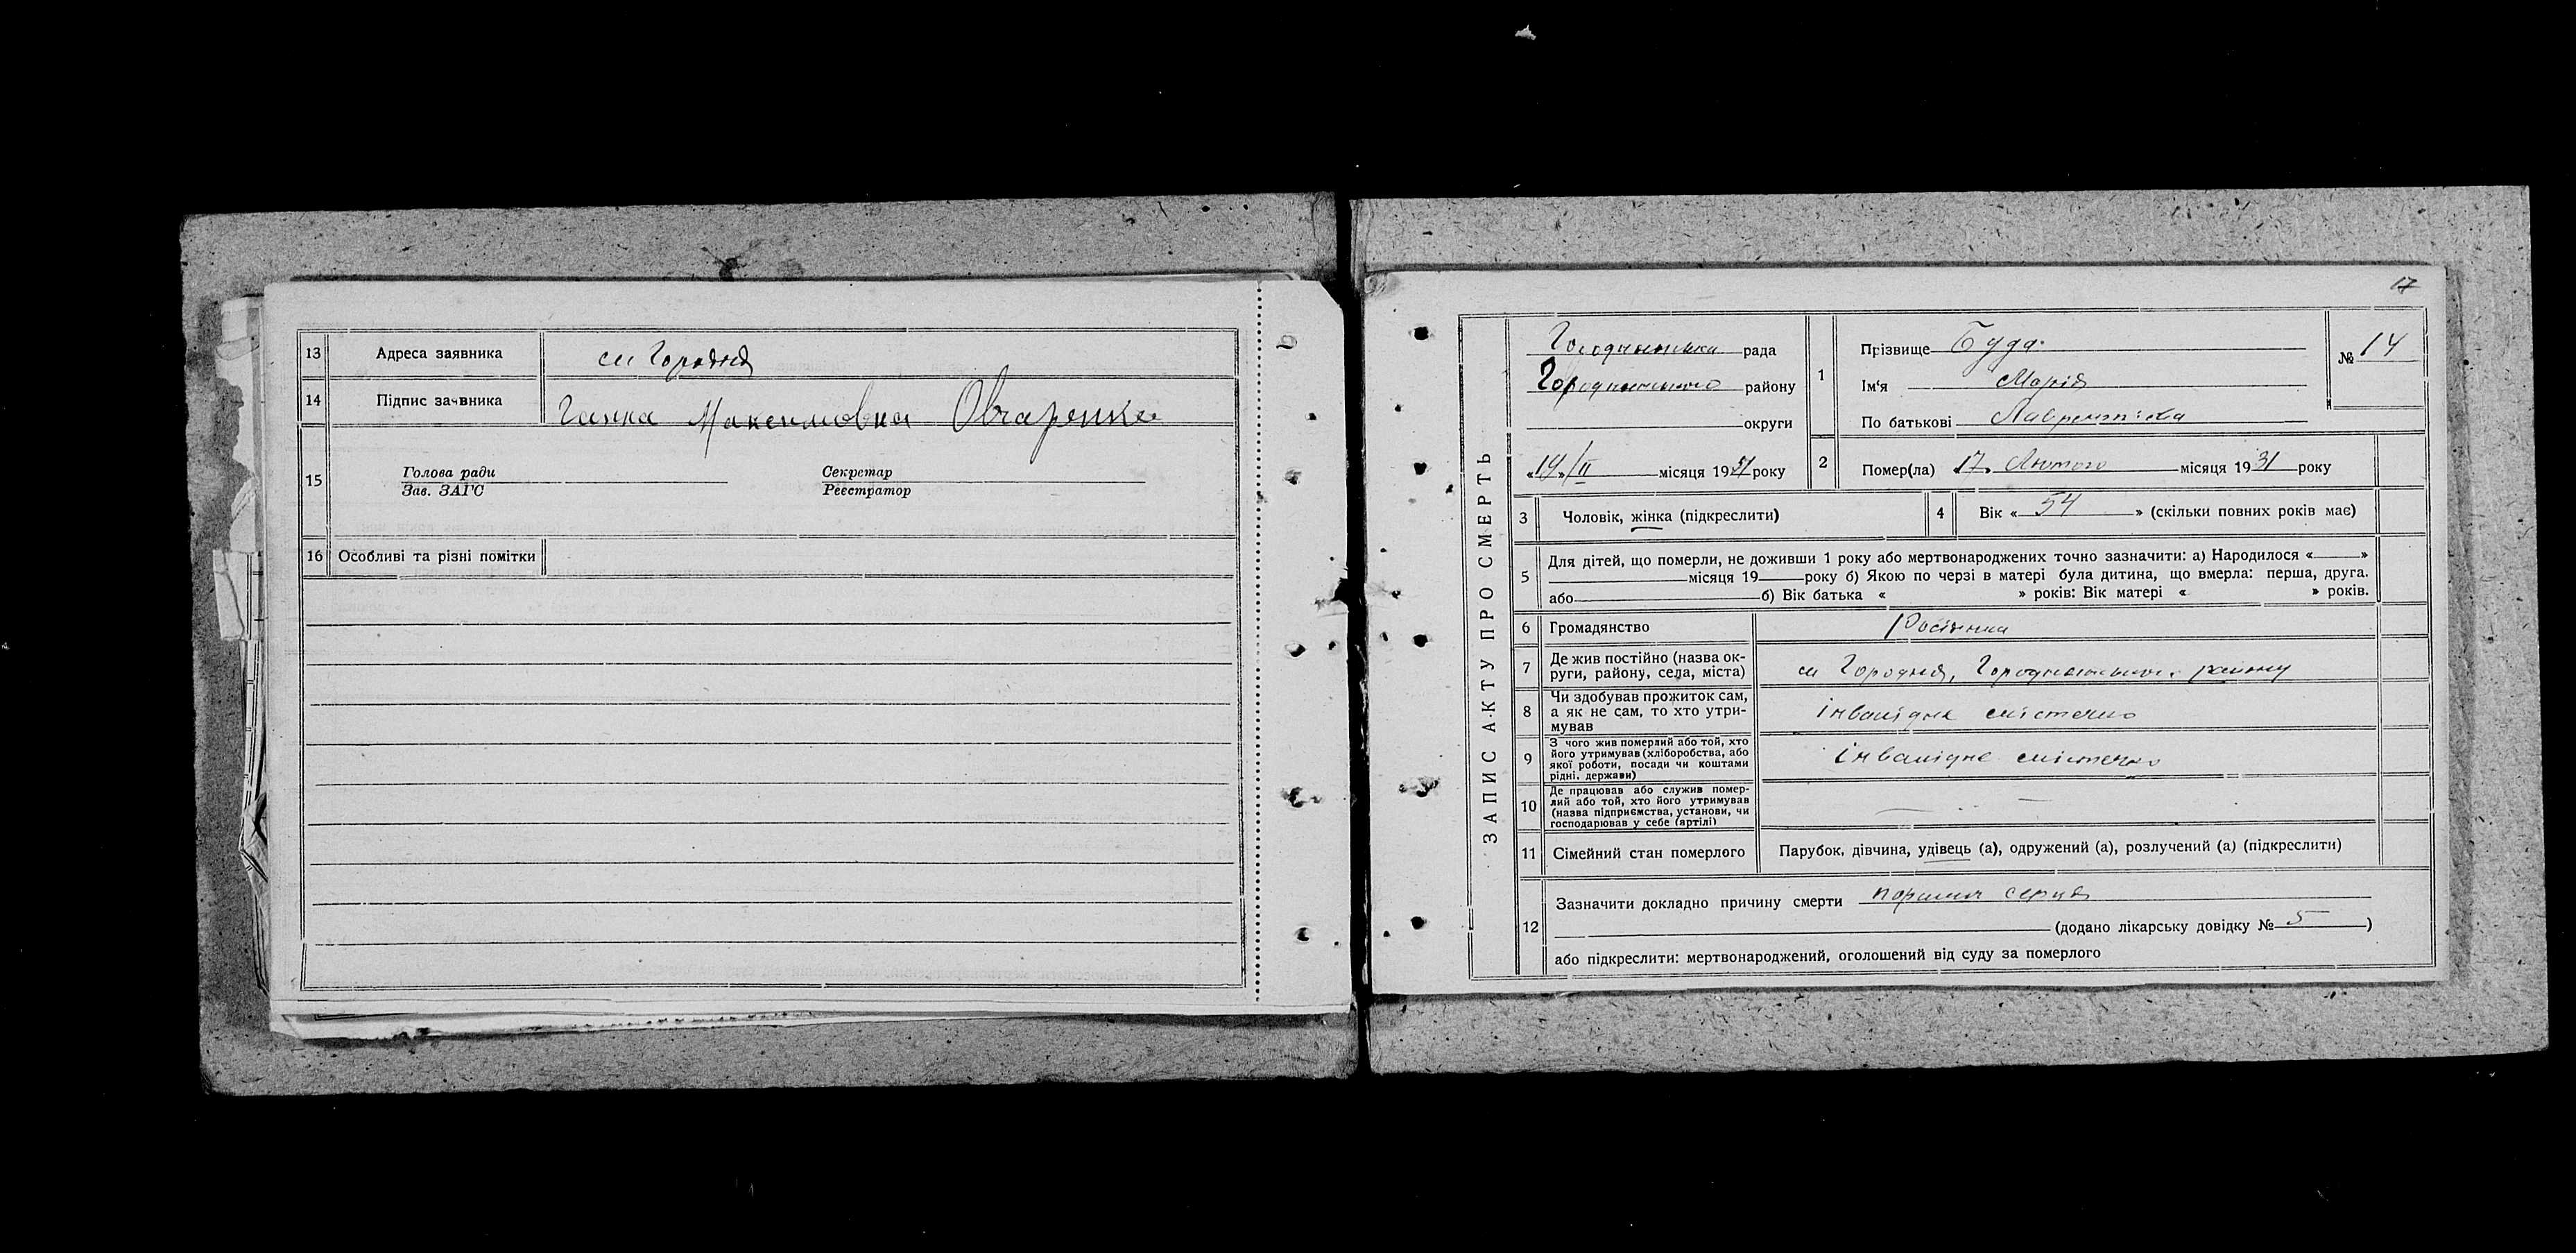 13 Адреса заявника см Городня
14 Підпис заявника Ганна Максимовна Овчаренко
15 Голова ради Секретар
Зав. ЗАГС Реєстратор
16 Особливі та різні помітки
17
ЗАПИС АКТУ ПРО СМЕРТЬ
Городнянська рада
Городнянського району
округи
«19»/II місяця 1931 року
1 Прізвище Буда
Ім'я Марія
По батькові Лаврентієва
№ 14
2 Помер(ла) «17» Лютого місяця 1931 року
3 Чоловік, жінка (підкреслити)
4 Вік « 54 » (скільки повних років має)
5 Для дітей, що померли, не доживши 1 року або мертвонароджених точно зазначити: а) Народилося « »
місяця 19 року б) Якою по черзі в матері була дитина, що вмерла: перша, друга.
або б) Вік батька « » років: Вік матері « » років.
6 Громадянство Росіянка
7 Де жив постійно (назва ок-
руги, району, села, міста) см Городня, Городнянського району
8 Чи здобував прожиток сам,
а як не сам, то хто утри-
мував інвалідне містечко
9 З чого жив померлий або той, хто
його утримував (хліборобства, або
якої роботи, посади чи коштами
рідні, держави) інвалідне містечко
10 Де працював або служив помер-
лий або той, хто його утримував
(назва підприємства, установи, чи
господарював у себе (артілі) —
11 Сімейний стан померлого Парубок, дівчина, удівець (а), одружений (а), розлучений (а) (підкреслити)
12 Зазначити докладно причину смерти порок серця
(додано лікарську довідку № 5 )
або підкреслити: мертвонароджений, оголошений від суду за померлого